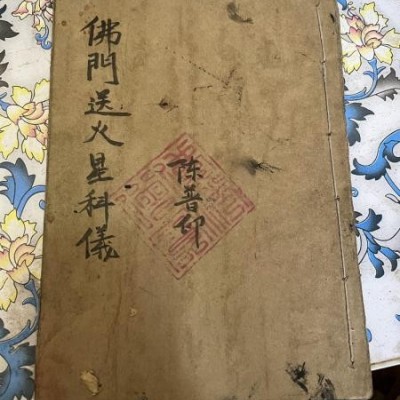 佛門送火星科儀
陈普仰